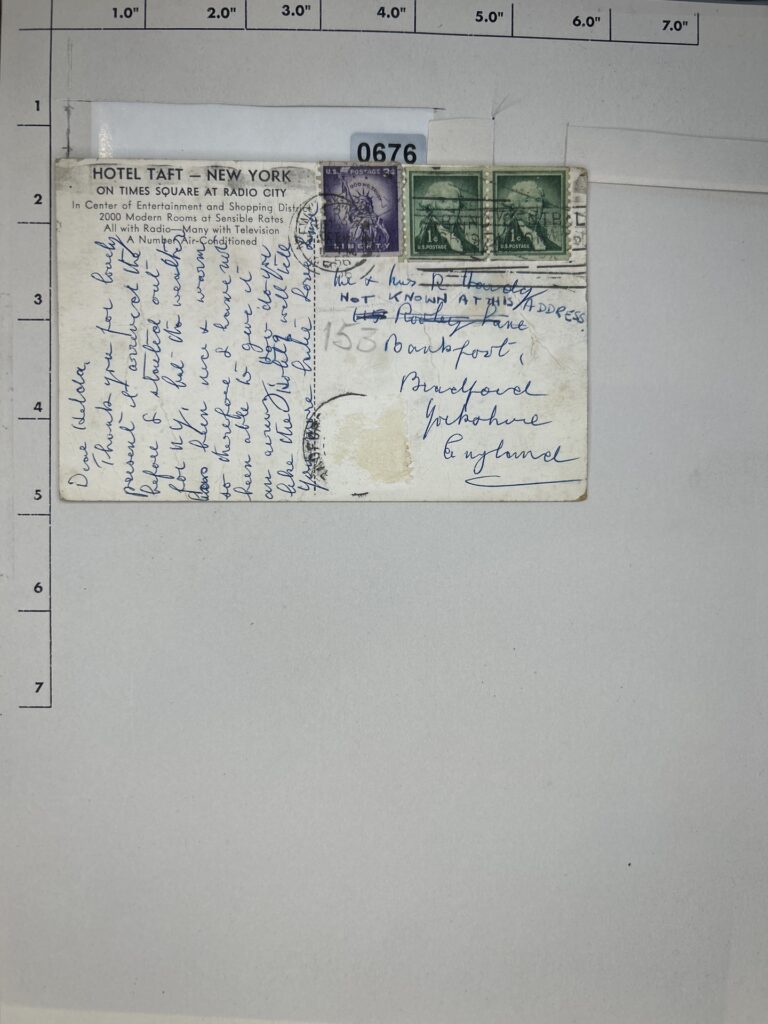 1.0" 2.0" 3.0" 4.0" 5.0" 6.0" 7.0"
1
2
3
4
5
6
7
0676
HOTEL TAFT – NEW YORK
ON TIMES SQUARE AT RADIO CITY
In Center of Entertainment and Shopping Distri
2000 Modern Rooms at Sensible Rates
All with Radio—Many with Television
A Number Air-Conditioned
U.S. POSTAGE 3¢
IN GOD WE TRUST
LIBERTY
U.S. POSTAGE
U.S. POSTAGE
Dear Helda,
Thank you for lovely
present it arrived the
before I started out
for N.Y, but the weather
has been nice & warm
so therefore I have not
been able to give it
an airing, how do you
like the Hotel will tell
you more later Love
Mr & Mrs R Handy
NOT KNOWN AT THIS ADDRESS
115 Rooley Lane
153
Bankfoot,
Bradford
Yorkshire
England